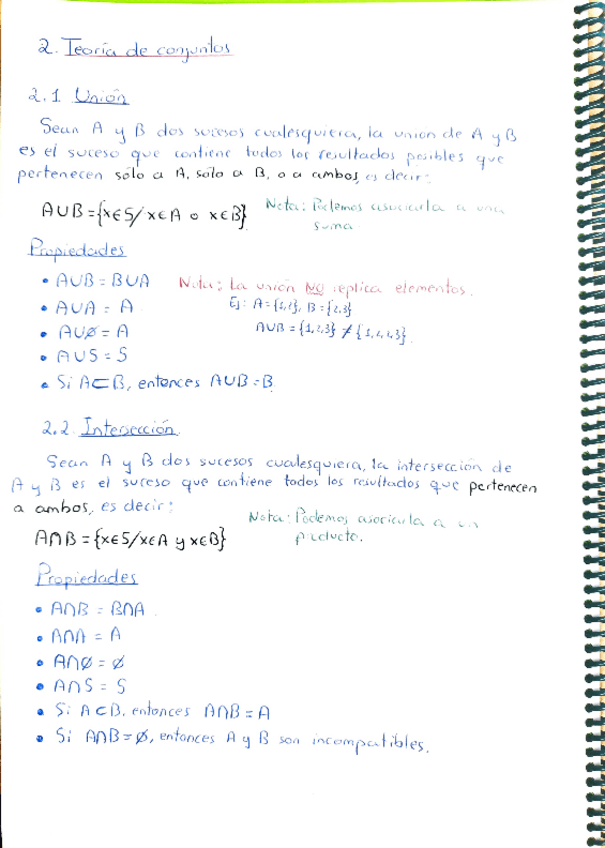 2. Teoría de conjuntos
2.1 Unión
Sean A y B dos sucesos cualesquiera, la union de A y B
es el suceso que contiene todos los resultados posibles que
pertenecen solo a A, solo a B, o a ambos, es decir:
A∪B = {x∈S/x∈A o x∈B}
Nota: Podemos asociarla a una
suma
Propiedades
• A∪B = B∪A
Nota: La unión NO replica elementos.
• A∪A = A
Ej: A = {1,2}, B = {2,3}
• A∪∅ = A
A∪B = {1,2,3} ≠ {1,2,2,3}.
• A∪S = S
• Si A⊂B, entonces A∪B = B
2.2 Intersección
Sean A y B dos sucesos cualesquiera, la intersección de
A y B es el suceso que contiene todos los resultados que pertenecen
a ambos, es decir:
A∩B = {x∈S/x∈A y x∈B}
Nota: Podemos asociarla a un
producto.
Propiedades
• A∩B = B∩A
• A∩A = A
• A∩∅ = ∅
• A∩S = S
• Si A⊂B, entonces A∩B = A
• Si A∩B = ∅, entonces A y B son incompatibles.